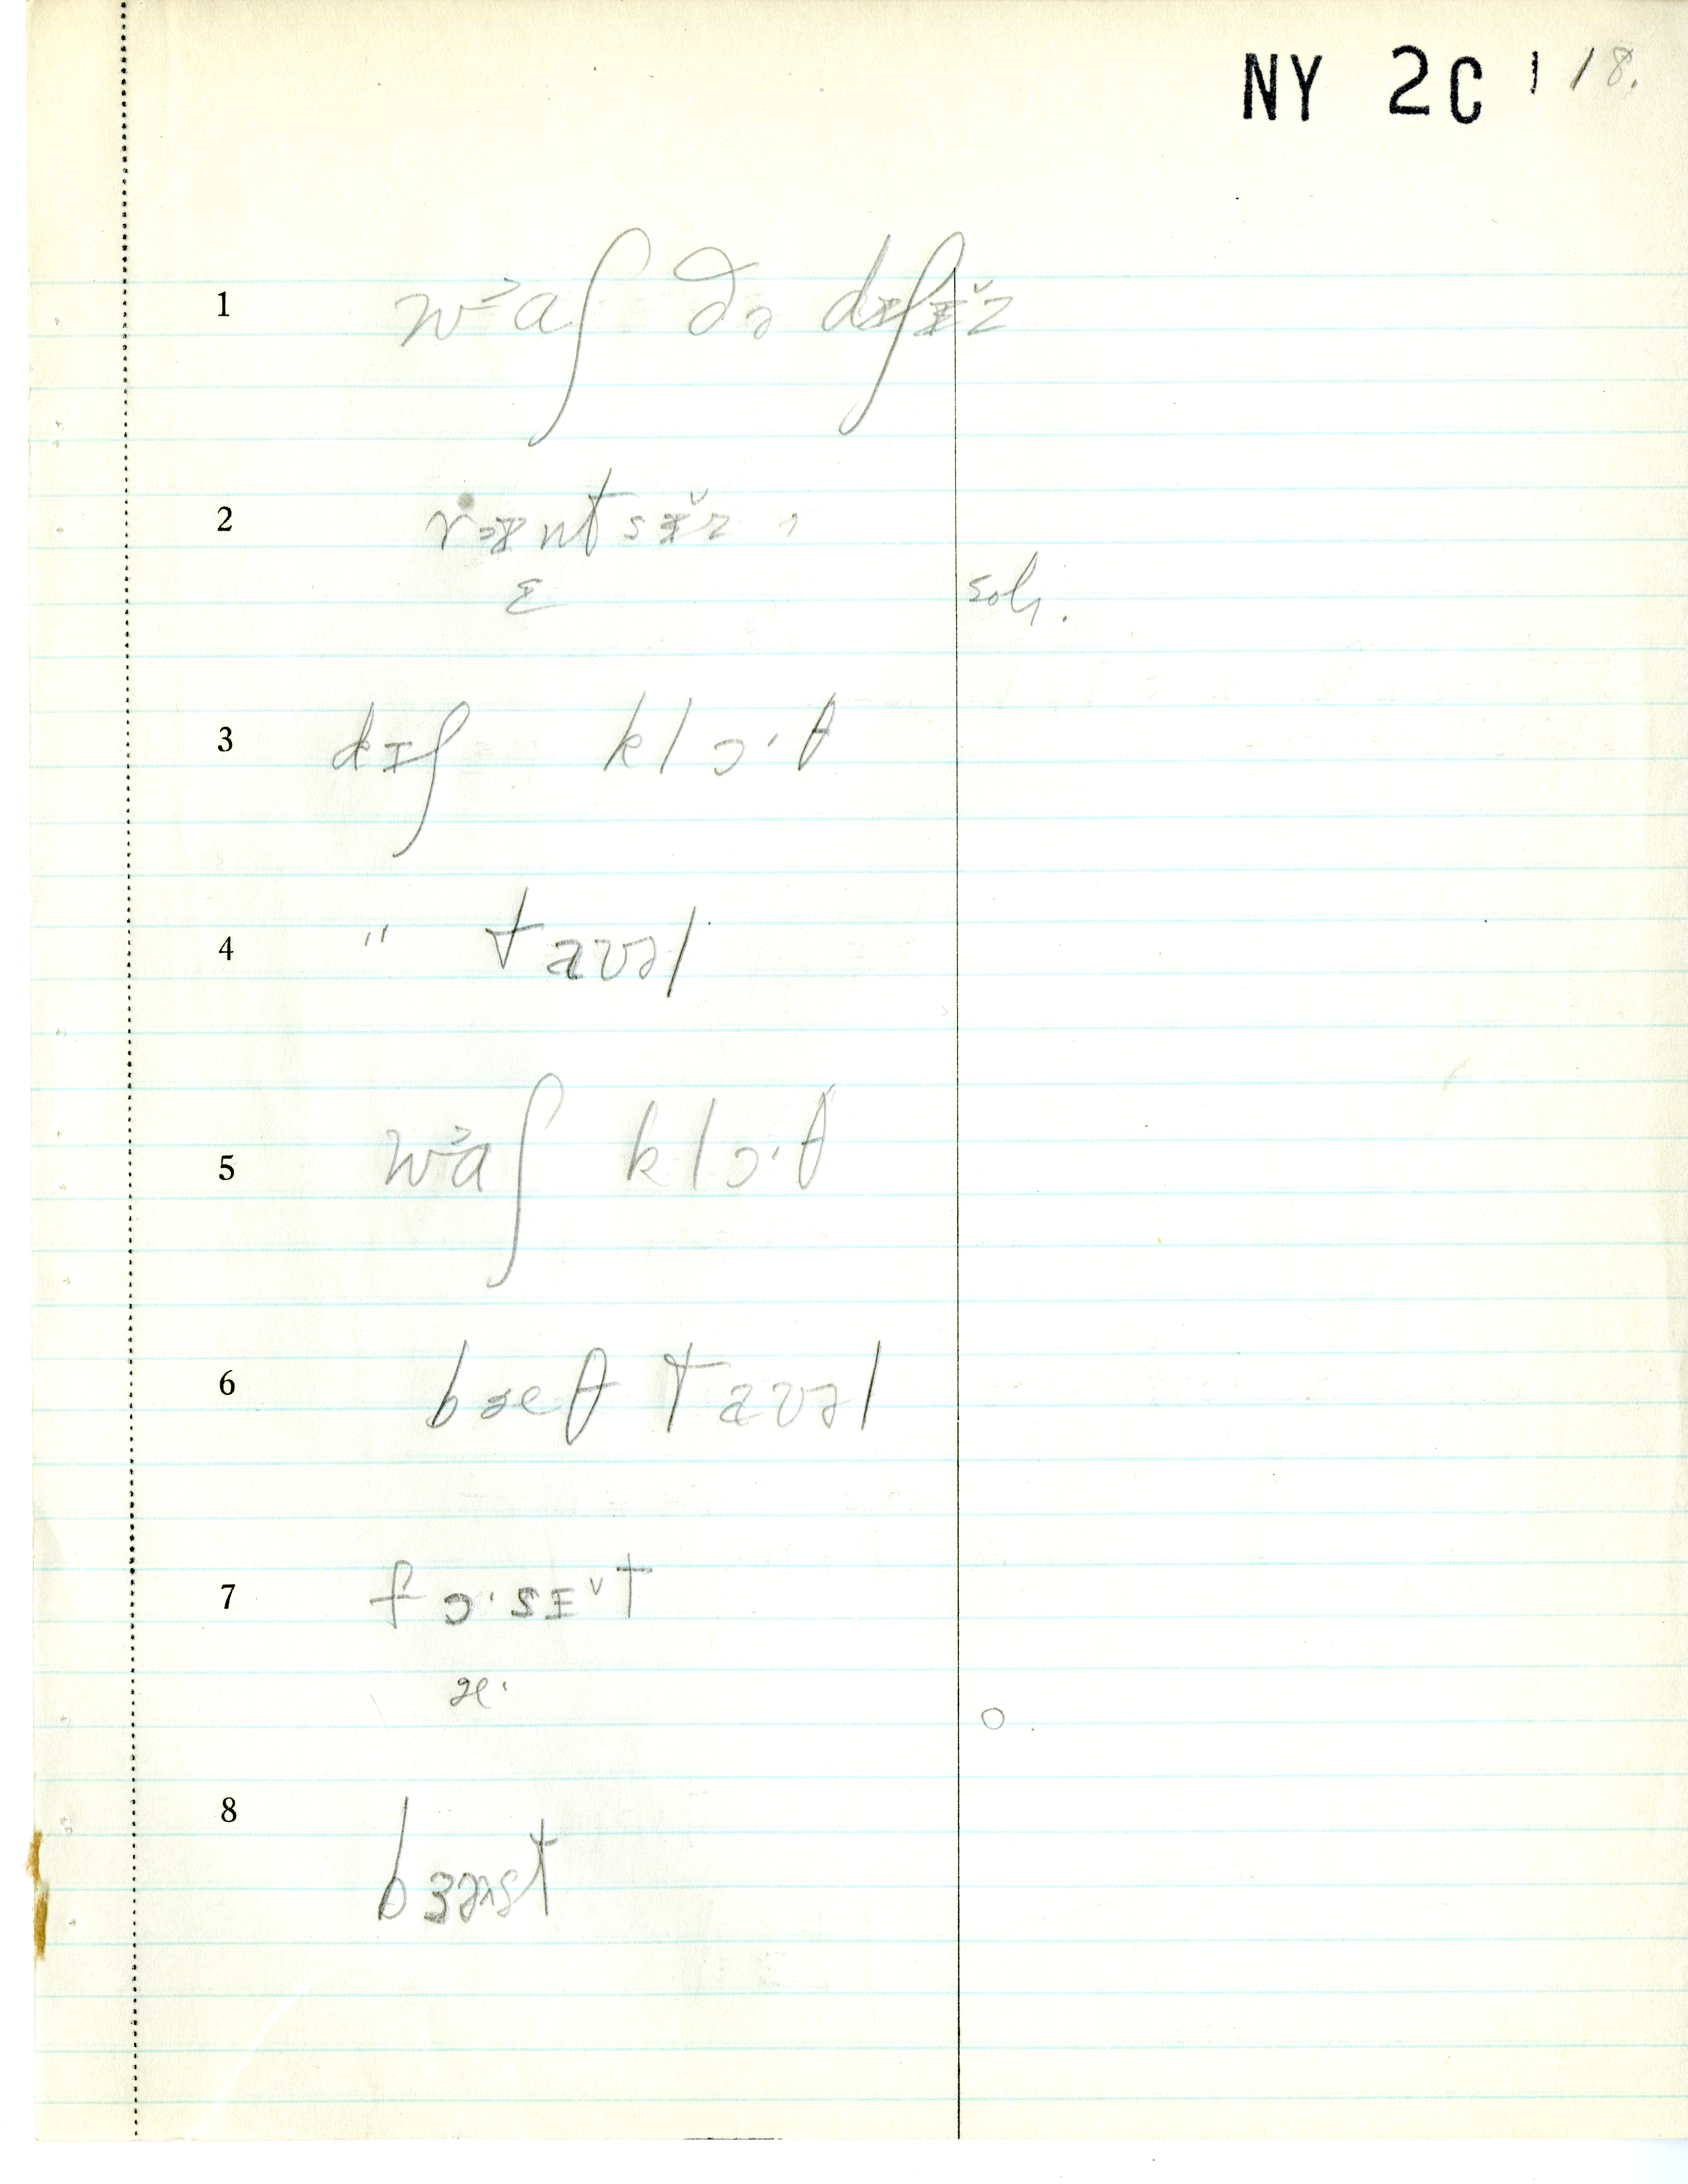 NY 2C 1 18.
1 wɔaʃ ðə dɪʃɪ̌z
2 rɛntsɪ̌z ,
ɛ soh.
3 dɪʃ klɔ·θ
4 " taʊəl
5 wɔaʃ klɔ·θ
6 bæθ taʊəl
7 fɔ·sɪˇt
æ· o.
8 bɜɪst